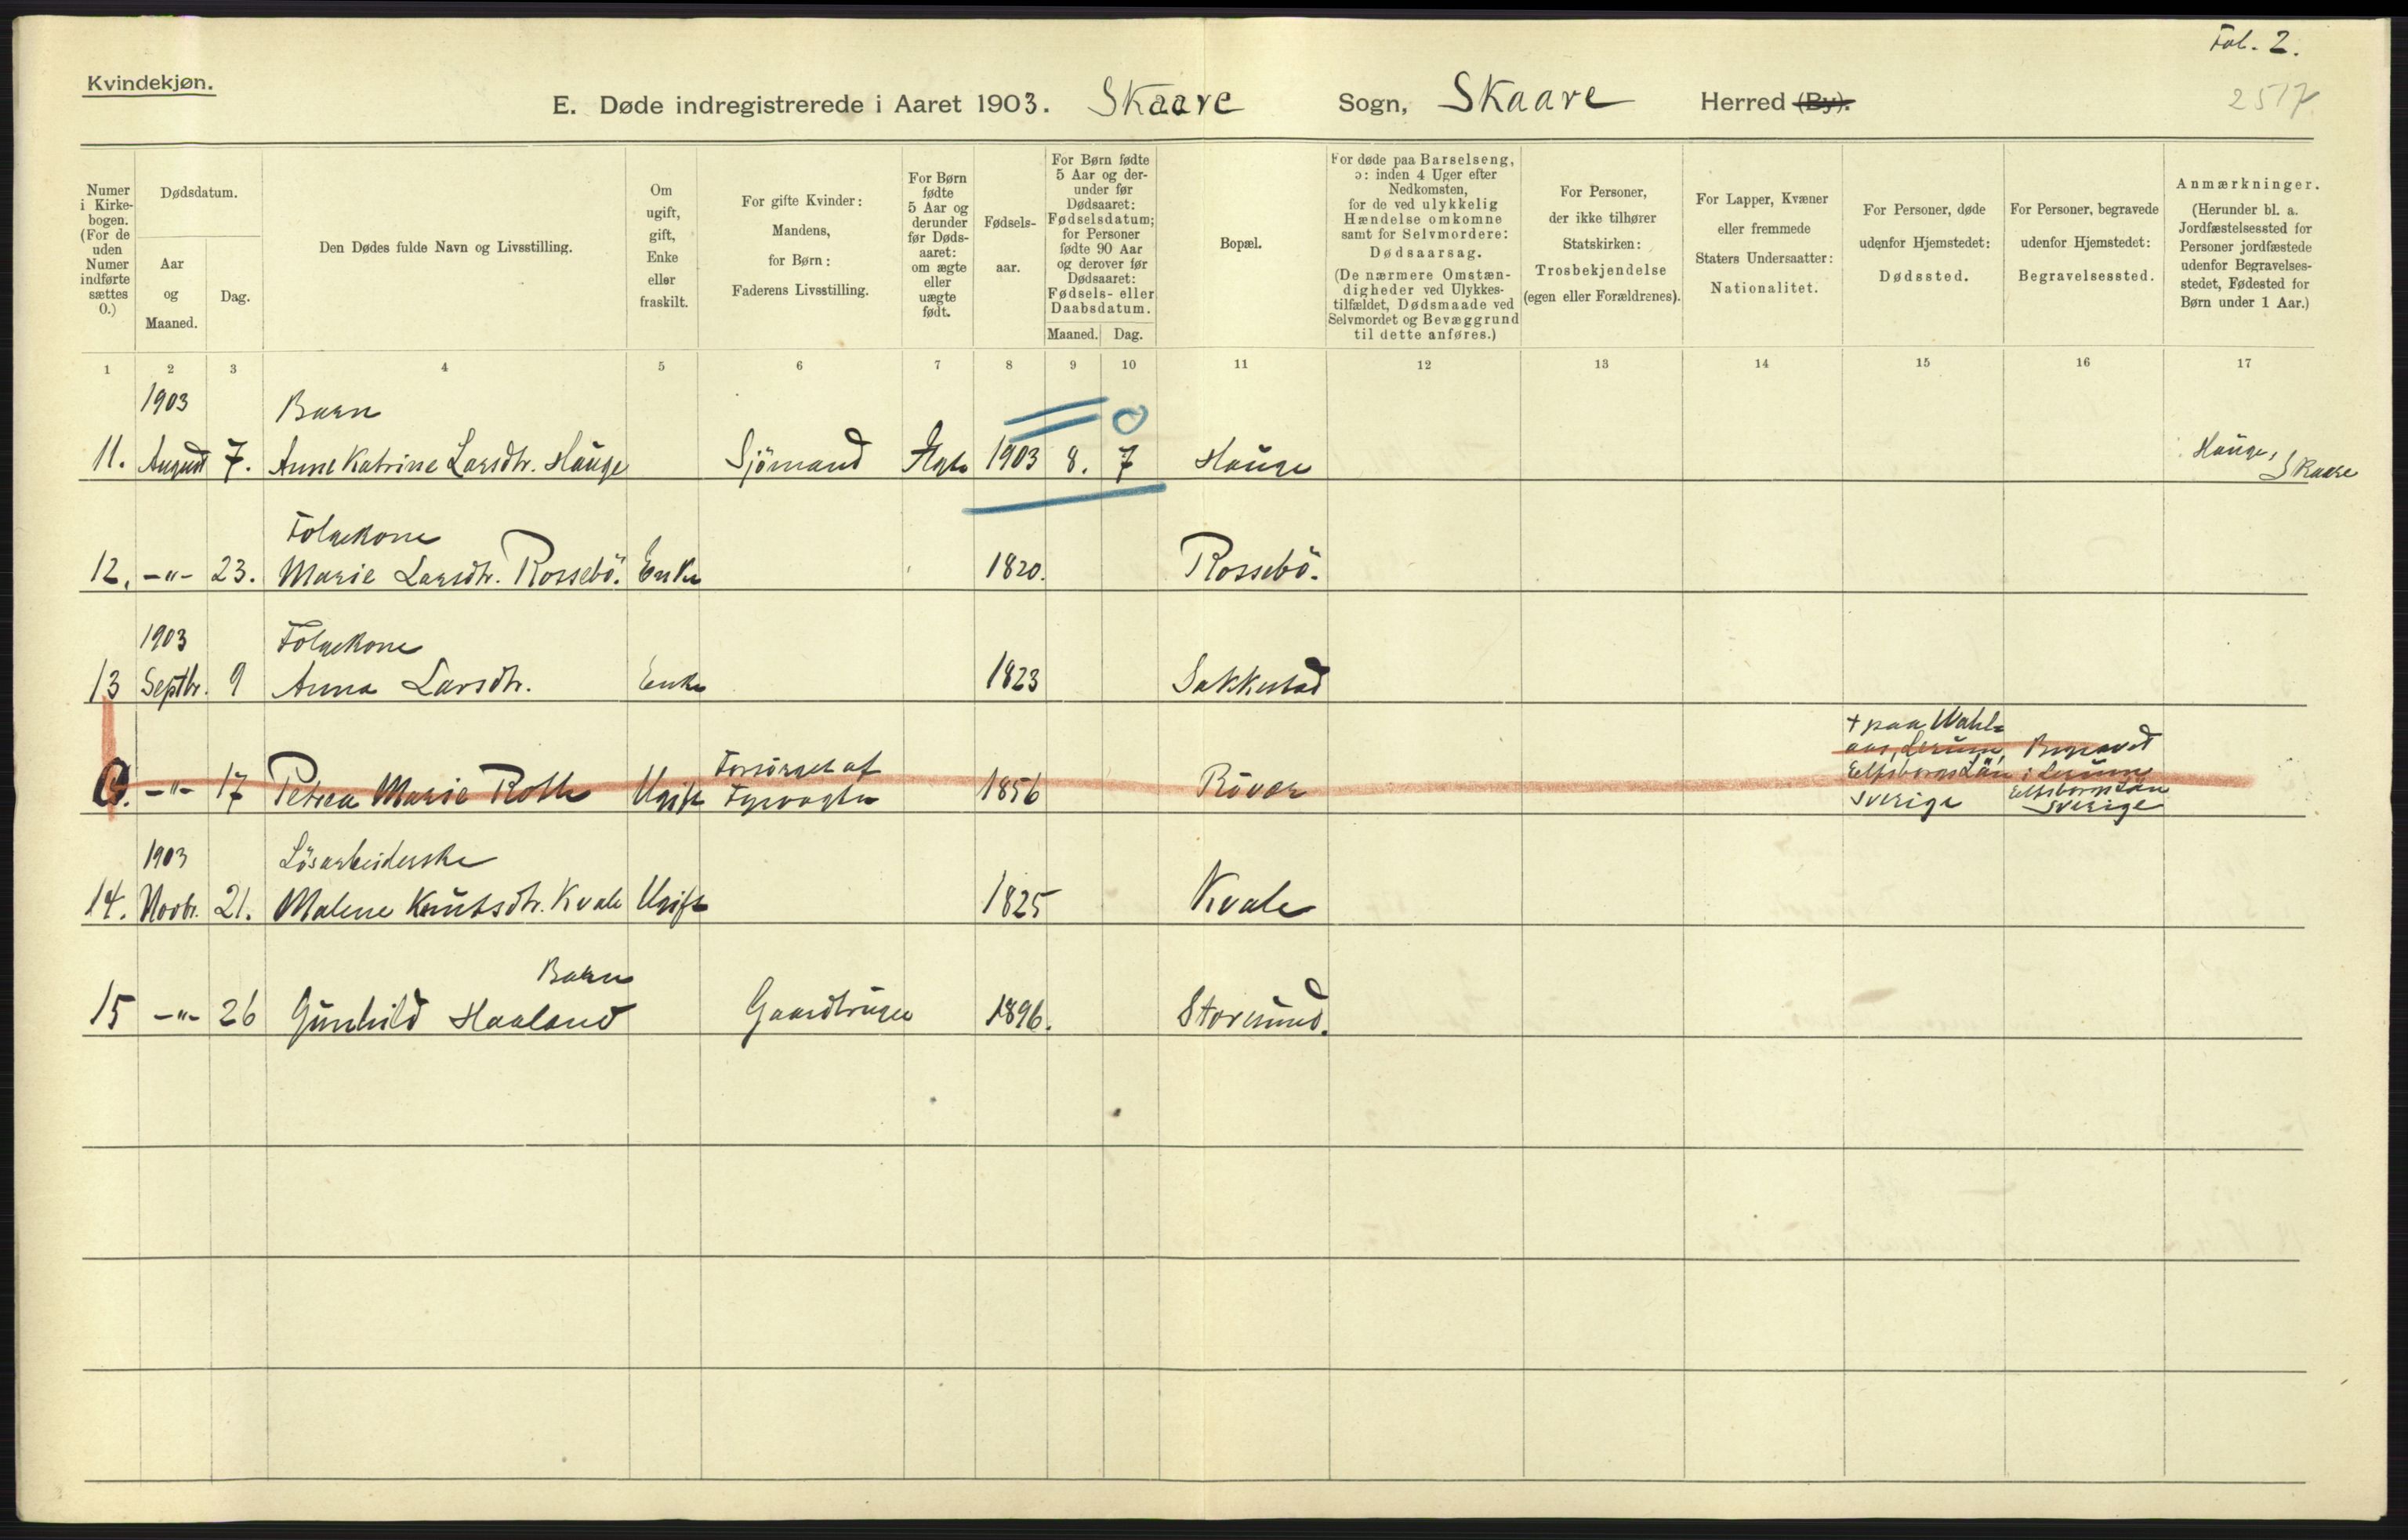 Fol. 2.
Kvindekjøn.
E. Døde indregistrerede i Aaret 1903. Skaare Sogn, Skaare Herred (By).
2517
Numer i Kirkebogen. (For de uden Numer indførte sættes 0.)
Dødsdatum.
Aar og Maaned.
Dag.
Den Dødes fulde Navn og Livsstilling.
Om ugift, gift, Enke eller fraskilt.
For gifte Kvinder: Mandens, for Børn: Faderens Livsstilling.
For Børn fødte 5 Aar og derunder før Dødsaaret: om ægte eller uægte født.
Fødselsaar.
For Børn fødte 5 Aar og derunder før Dødsaaret: Fødselsdatum; for Personer fødte 90 Aar og derover før Dødsaaret: Fødsels- eller Daabsdatum.
Maaned. Dag.
Bopæl.
For døde paa Barselseng, ɔ: inden 4 Uger efter Nedkomsten, for de ved ulykkelig Hændelse omkomne samt for Selvmordere: Dødsaarsag. (De nærmere Omstændigheder ved Ulykkestilfældet, Dødsmaade ved Selvmordet og Bevæggrund til dette anføres.)
For Personer, der ikke tilhører Statskirken: Trosbekjendelse (egen eller Forældrenes).
For Lapper, Kvæner eller fremmede Staters Undersaatter: Nationalitet.
For Personer, døde udenfor Hjemstedet: Dødssted.
For Personer, begravede udenfor Hjemstedet: Begravelsessted.
Anmærkninger. (Herunder bl. a. Jordfæstelsessted for Personer jordfæstede udenfor Begravelsesstedet, Fødested for Børn under 1 Aar.)
1 2 3 4 5 6 7 8 9 10 11 12 13 14 15 16 17
1903 Barn 0
11. August 7. Anne Katrine Larsdtr. Hauge Sjömand Ægte 1903 8. 7 Hauge Hauge, Skaare
Folgekone
12. -"- 23. Marie Larsdtr. Rossebö. Enke 1820. Rossebö.
1903 Folgekone
13 Septbr. 9 Anna Larsdtr. Enke 1823 Sakkestad
0. -"- 17 Petrea Marie Roth Ugift Forsörget af Fyrvogter 1856 Rövær
+ paa Wahlaas, Lerum, Elfsborgs Län Sverige
Begravet i Lerum Elfsborgs Län Sverige
1903 Lösarbeiderske
14. Novbr. 21. Malene Knutsdtr. Kvale Ugift 1825 Kvale
Barn
15 -"- 26 Gunhild Haaland Gaardbruger 1896. Storesund.